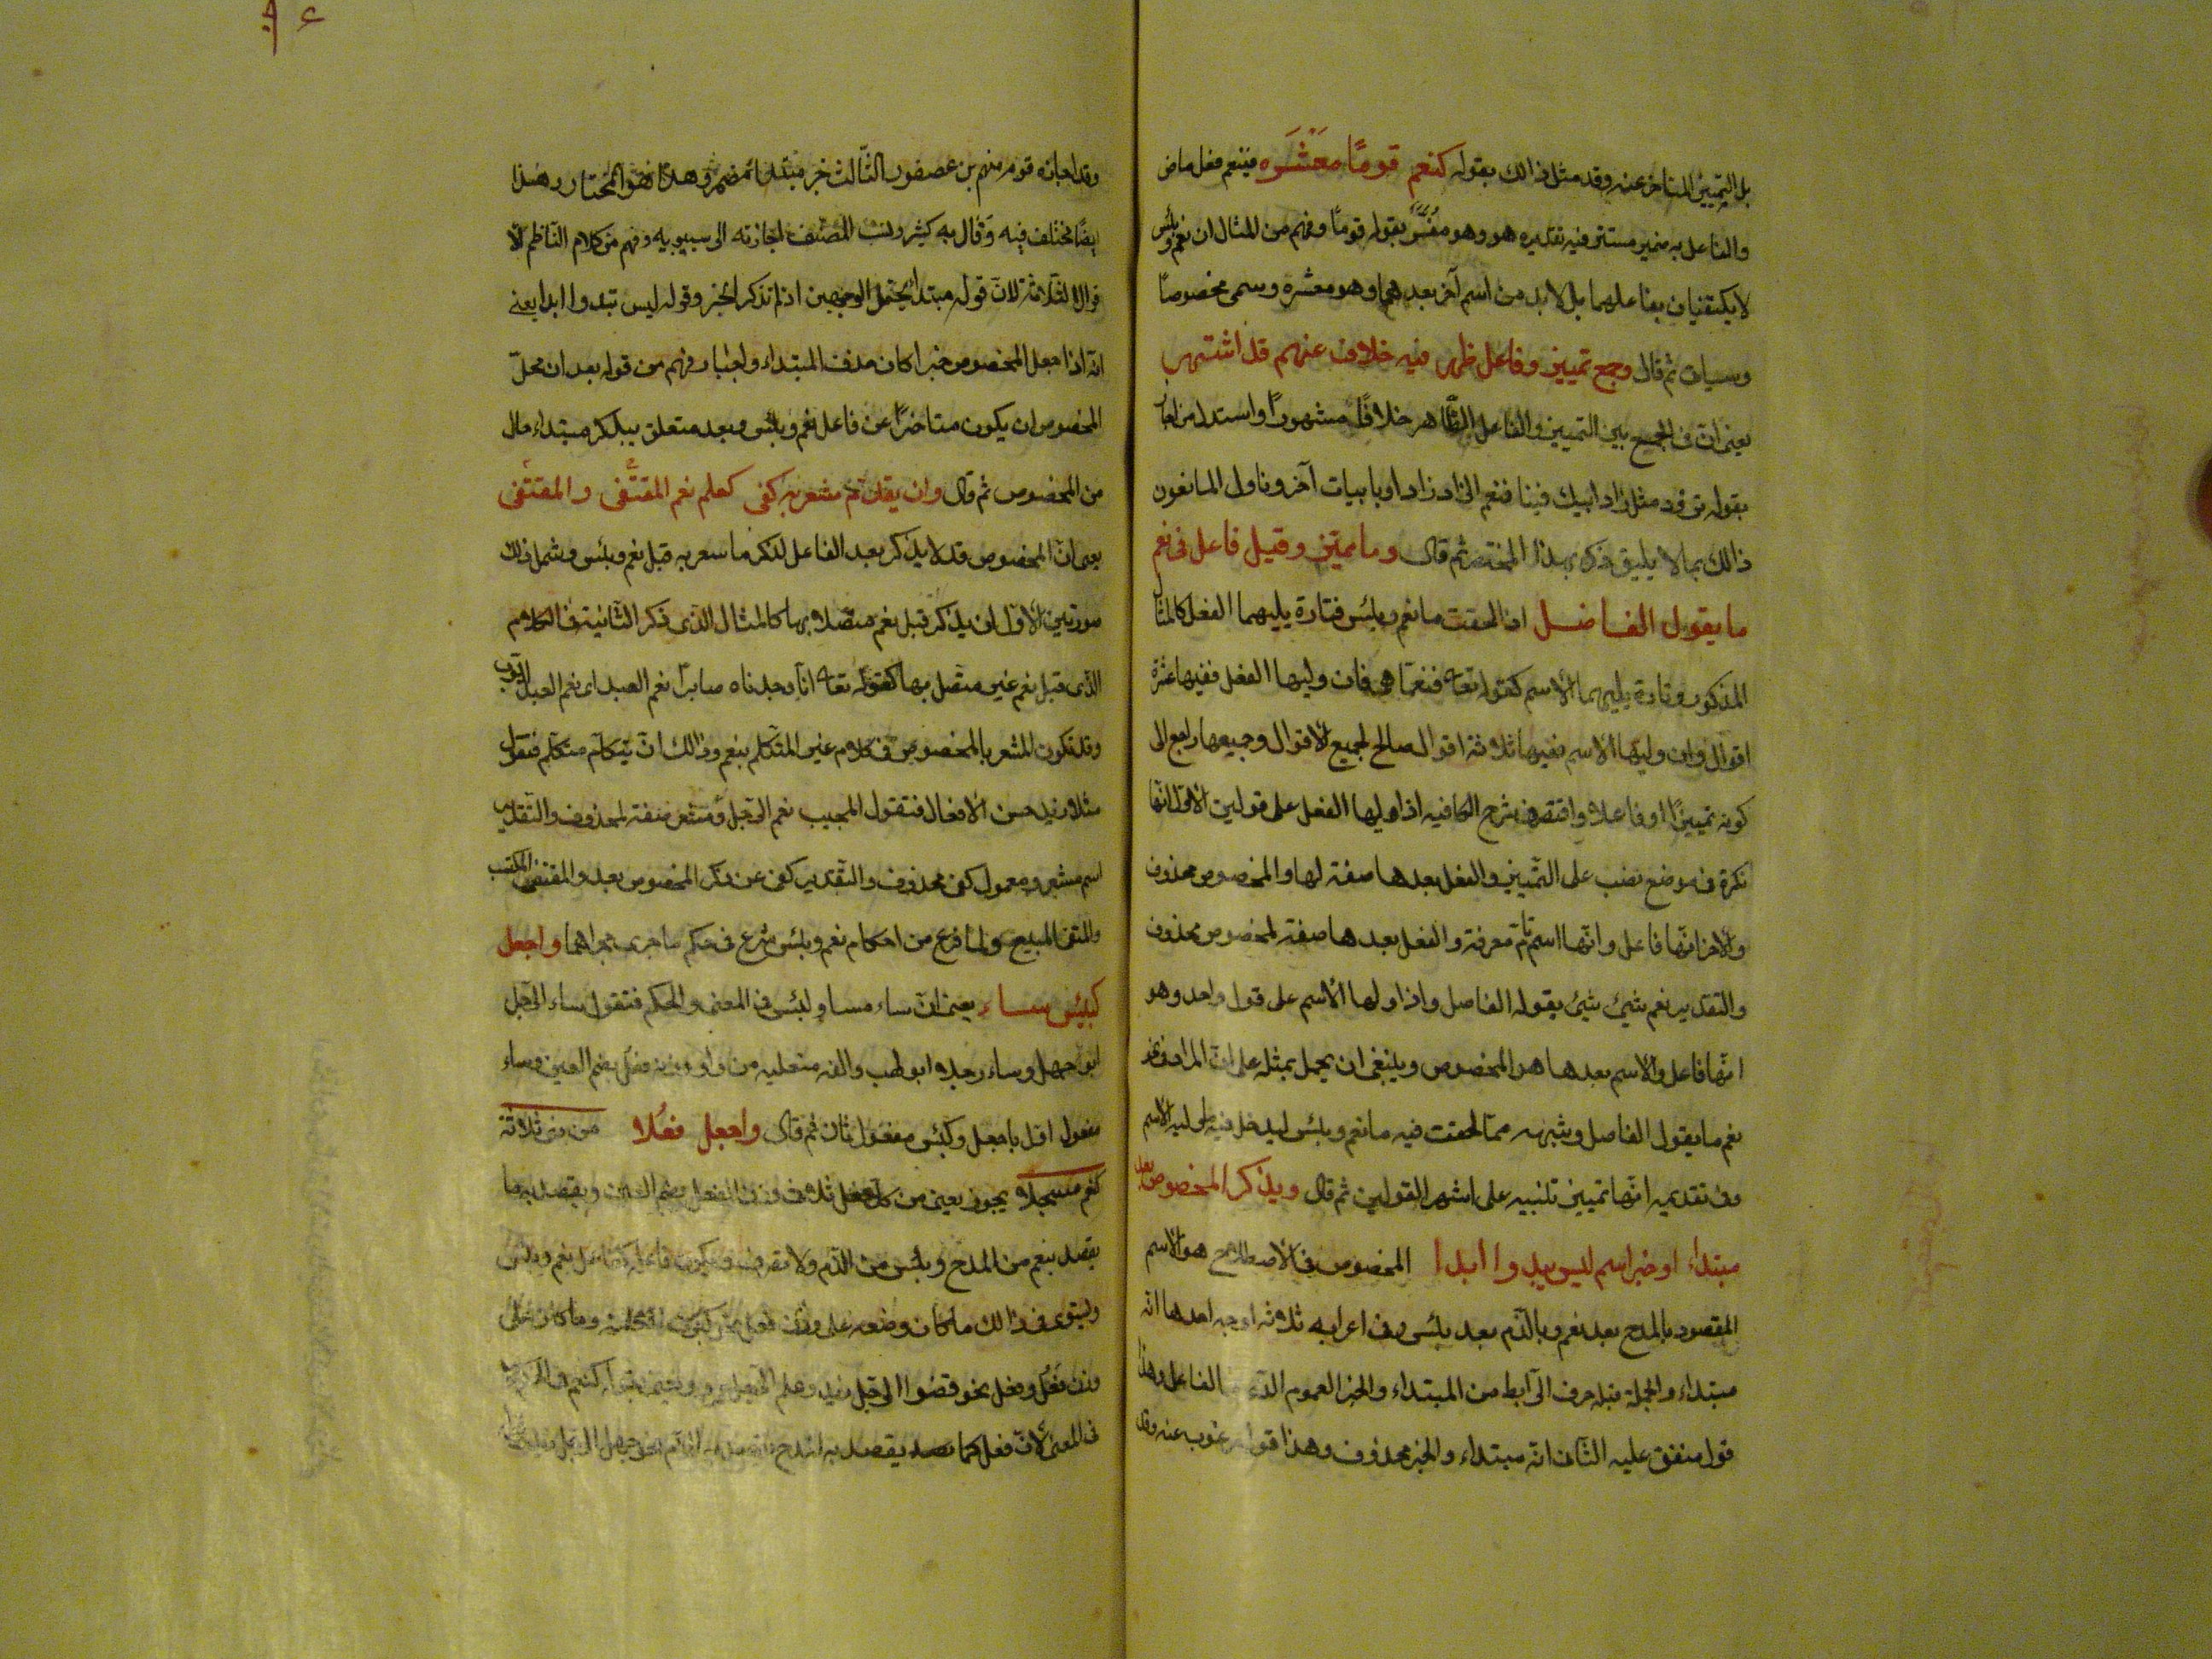 بل التمييز المتاخر عنه وقد مثل ذالك بقوله كنعم قومًا مَعْشَره فنعم فعل ماض
والفاعل به ضمير مستتر فيه تقديره هو وهو مفسَّر بقوله قومًا وفهم من المثال ان نعم وبئس
لا يكتفيان بفاعلهما بل لابد من اسم آخر بعدهما وهو معشره وسمى مخصوصًا
وسيات ثم قال وجمع تمييز وفاعل ظهر فيه خلاف عنهم قد اشتهر
يعنى ان فى الجمع بين التمييز والفاعل الظّاهر خلافًا مشهورًا واستدل من اجاز
بقوله تزود مثل زاد ابيك فينا فنعم الزاد زادا وبابيات آخر وتاول المانعون
ذالك بما لا يليق ذكره بهذا المختصر ثم قال وما مميّز وقيل فاعل فى نعم
ما يقول الفاضل اذا لحقت ما نعم وبئس فتارة يليهما الفعل كالمثال
المذكور وتارة يليهما الاسم كقوله تعالى فنعمّا هى فان وليها الفعل ففيها عشرة
اقوال وان وليها الاسم ففيها ثلاثة اقوال صالح لجميع الاقوال وجميعها راجع الى
كونه تمييزًا او فاعلا واقتصر فى شرح الكافيه اذا وليها الفعل على قولين الاوّل انّها
نكرة فى موضع نصب على التّمييز والفعل بعدها صفة لها والمخصوص محذوف
والآخر انّها فاعل وانّها اسم تامّ معرفة والفعل بعدها صفة لمخصوص محذوف
والتقدير نعم شيئ شيئ يقوله الفاضل واذا وليها الاسم على قول واحد وهو
انّها فاعل والاسم بعدها هو المخصوص وينبغى ان يحمل بمثله على انّ المراد فى نحو
نعم ما يقول الفاضل وشبهه ممّا لحقت فيه ما نعم وبئس ليدخل فيه ما وليه الاسم
وفى تقديمه انّها تمييز تنبيه على اشهر القولين ثم قال ويذكر المخصوص بعد
مبتداء او خبر اسم ليس يبدوا ابدا المخصوص فى الاصطلاح هو الاسم
المقصود بالمدح بعد نعم وبالذّم بعد بئس وفى اعرابه ثلاثة اوجه احدها انّه
مبتداء والجملة قبله حرف الرّابط من المبتداء والخبر العموم الذى الفاعل وهذا
قول متفق عليه الثّان انّه مبتداء والخبر محذوف وهذا قول عنه وقد
وقد اجازه قوم منهم بن عصفور الثّالث خبر مبتداء مضمر وهذا هو المختار وهذا
ايضًا مختلف فيه وقال به كثير ونسب المصنّف اجازته الى سيبويه وفهم من كلام النّاظم الا
قوال الثلاثة لانّ قوله مبتدا يحتمل الوجهين اذ لم تذكر الخبر وقوله ليس تبدوا ابدا يعنى
انّه اذا جعل المخصوص خبرا كان حذف المبتداء واجبا وفهم من قوله بعد ان محلّ
المخصوص ان يكون متاخرًا عن فاعل نعم وبئس وبعد متعلق بيذكر مبتداء حال
من المخصوص ثم قال وان يقدّم مشعر به كفى كعلم نعم المقتنى والمقتفى
يعنى انّ المخصوص قد لا يذكر بعد الفاعل لذكر ما شعر به قبل نعم وبئس وشمل ذلك
صورتين الاول ان يذكر قبل نعم متصلا بها كالمثال الذّى ذكر الثّانية فى الكلام
الذّى قبل نعم غير متصل بها كقوله تعالى انا وجدناه صابرًا نعم العبد اى نعم العبد ايّوب
وقد تكون المشعر بالمخصوص فى كلام غير المتكلّم بنعم وذالك انّ يتكلّم متكلّم فيقول
مثلا زيد حسن الافعال فتقول المجيب نعم الرّجل صفة لمحذوف والتّقدير
اسم مشعر ومعمول كفى محذوف والتّقدير كفى عن ذكر المخصوص بعد والمقتنى المكتسب
والمقتفى المتبع ولما فرغ من احكام نعم وبئس شرع فى حكم ما جرى مجراهما واجعل
كبئس ساء يعنى انّ ساء مساو لبئس فى المعنى والحكم فتقول ساء الرّجل
ابو جهل وساء رجلا ابو لهب والفه منقلبه من واو وزنه فعل بضم العين وساء
مفعول اوّل باجعل وكبئس مفعول ثان ثم قال واجعل فعُلا من ذى ثلاثة
كنعم مسجلا يجوز يعنى من كل فعل ثلاثى وزن الفعل بضم العين ويقصد به ما
يقصد بنعم من المدح وبئس من الذّم ولا تتصرف ويكون فاعله كفاعل نعم وبئس
ويستوى فى ذالك ما كان وضعه على وزن فعل وما كان على
وزن فَعَل وفعِل نحو قضوا الرّجل زيد وعلم الرّجل
فى المعنى لانّ فعل كما يقصد به المدح